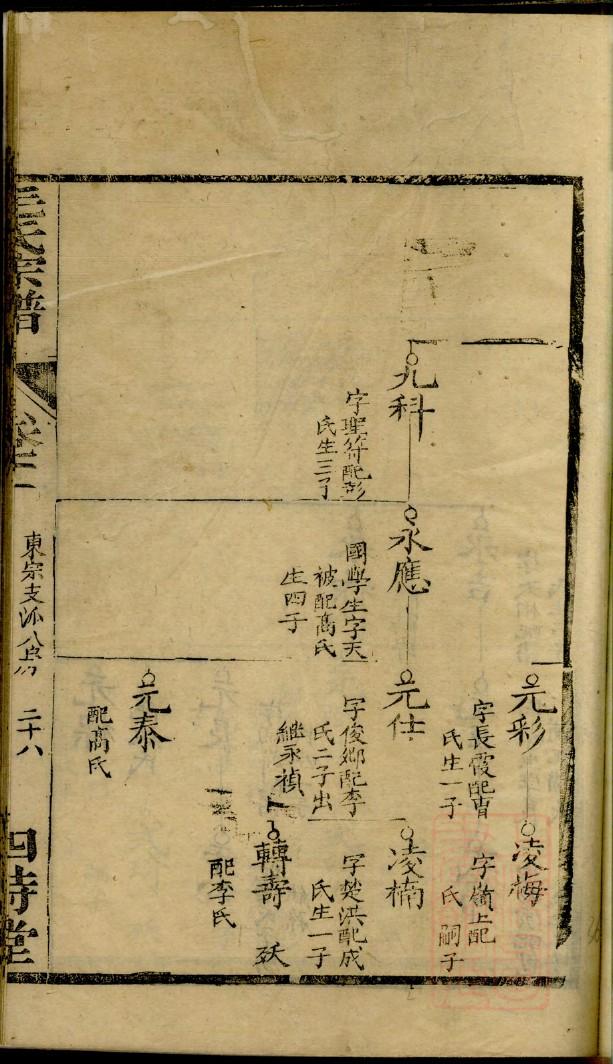 九科
字聖符配彭
氏生三子
永應
國學生字天
被配高氏
生四子
元彩
字長霞配曹
氏生一子
元仕
字俊鄉配李
氏二子出
繼永禎
元泰
配高氏
凌梅
字嶺上配
氏 嗣子
凌楠
字楚洪配成
氏生一子
轉壽 殀
配李氏
氏宗譜
東宗支派八
二十八
四詩堂